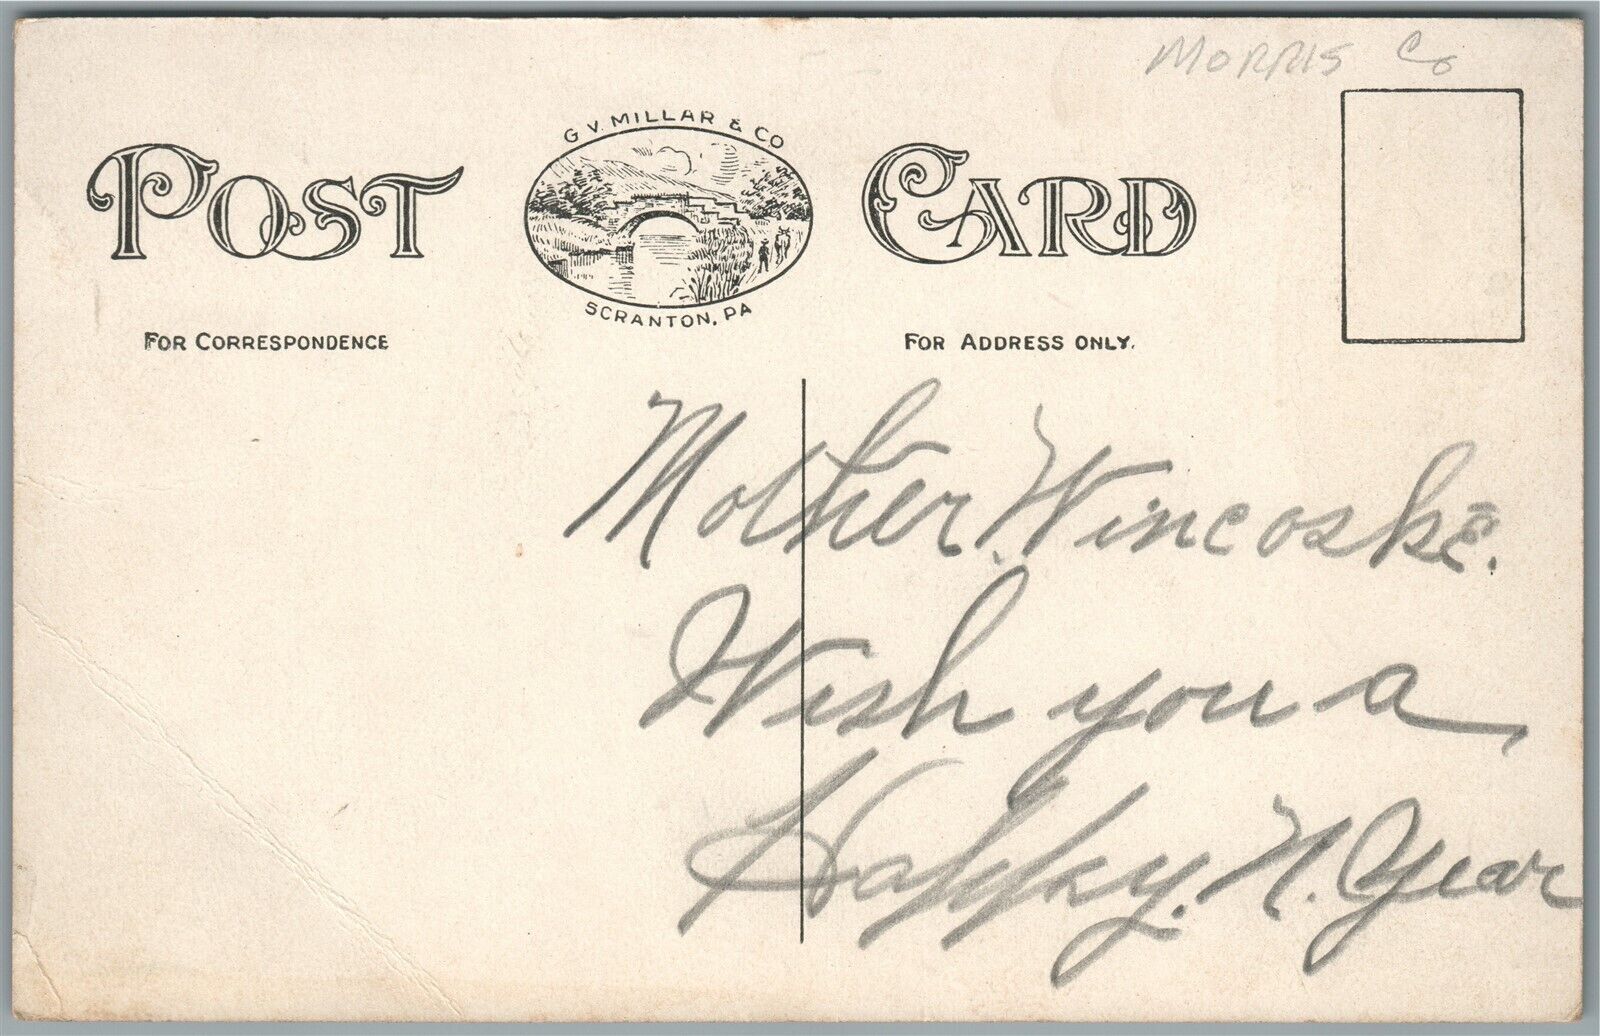 MORRIS Co
G V MILLAR & CO
POST CARD
SCRANTON, PA
FOR CORRESPONDENCE
FOR ADDRESS ONLY.
Mother. Wincoske.
Wish you a
Happy. N. Year